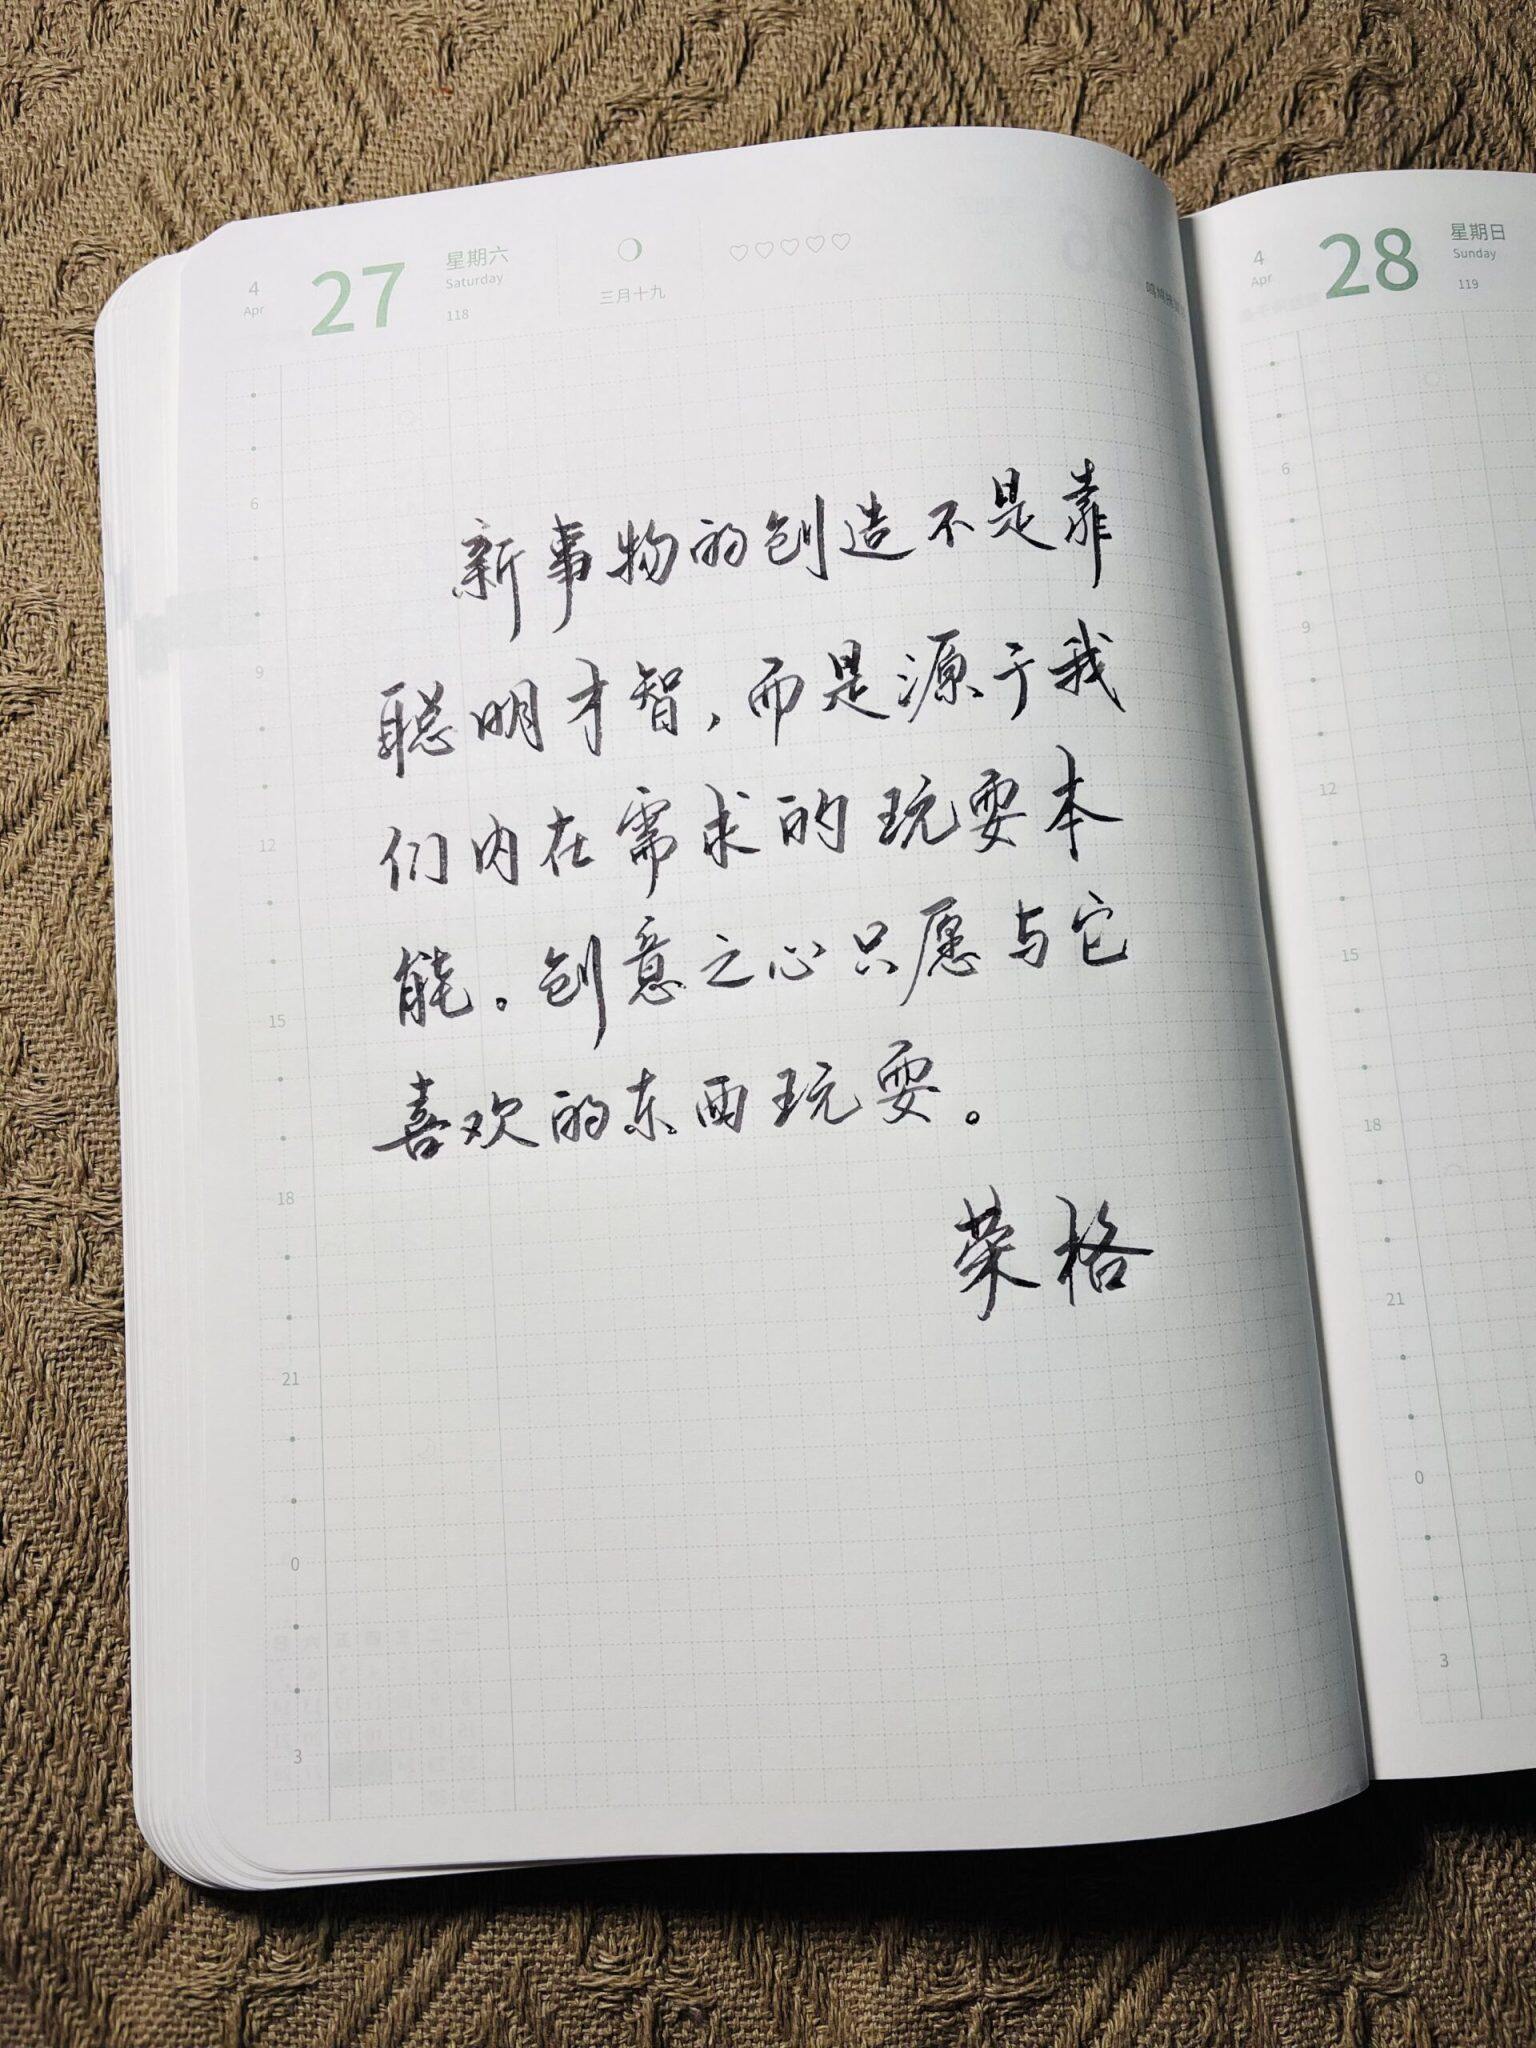 4 27 星期六 三月十九 ♡♡♡♡♡
Apr Saturday
118
6
9
12
15
18
21
0
3
新事物的创造不是靠
聪明才智，而是源于我
们内在需求的玩耍本
能。创意之心只愿与它
喜欢的东西玩耍。
荣格
4 28 星期日
Apr Sunday
119
6
9
12
15
18
21
0
3